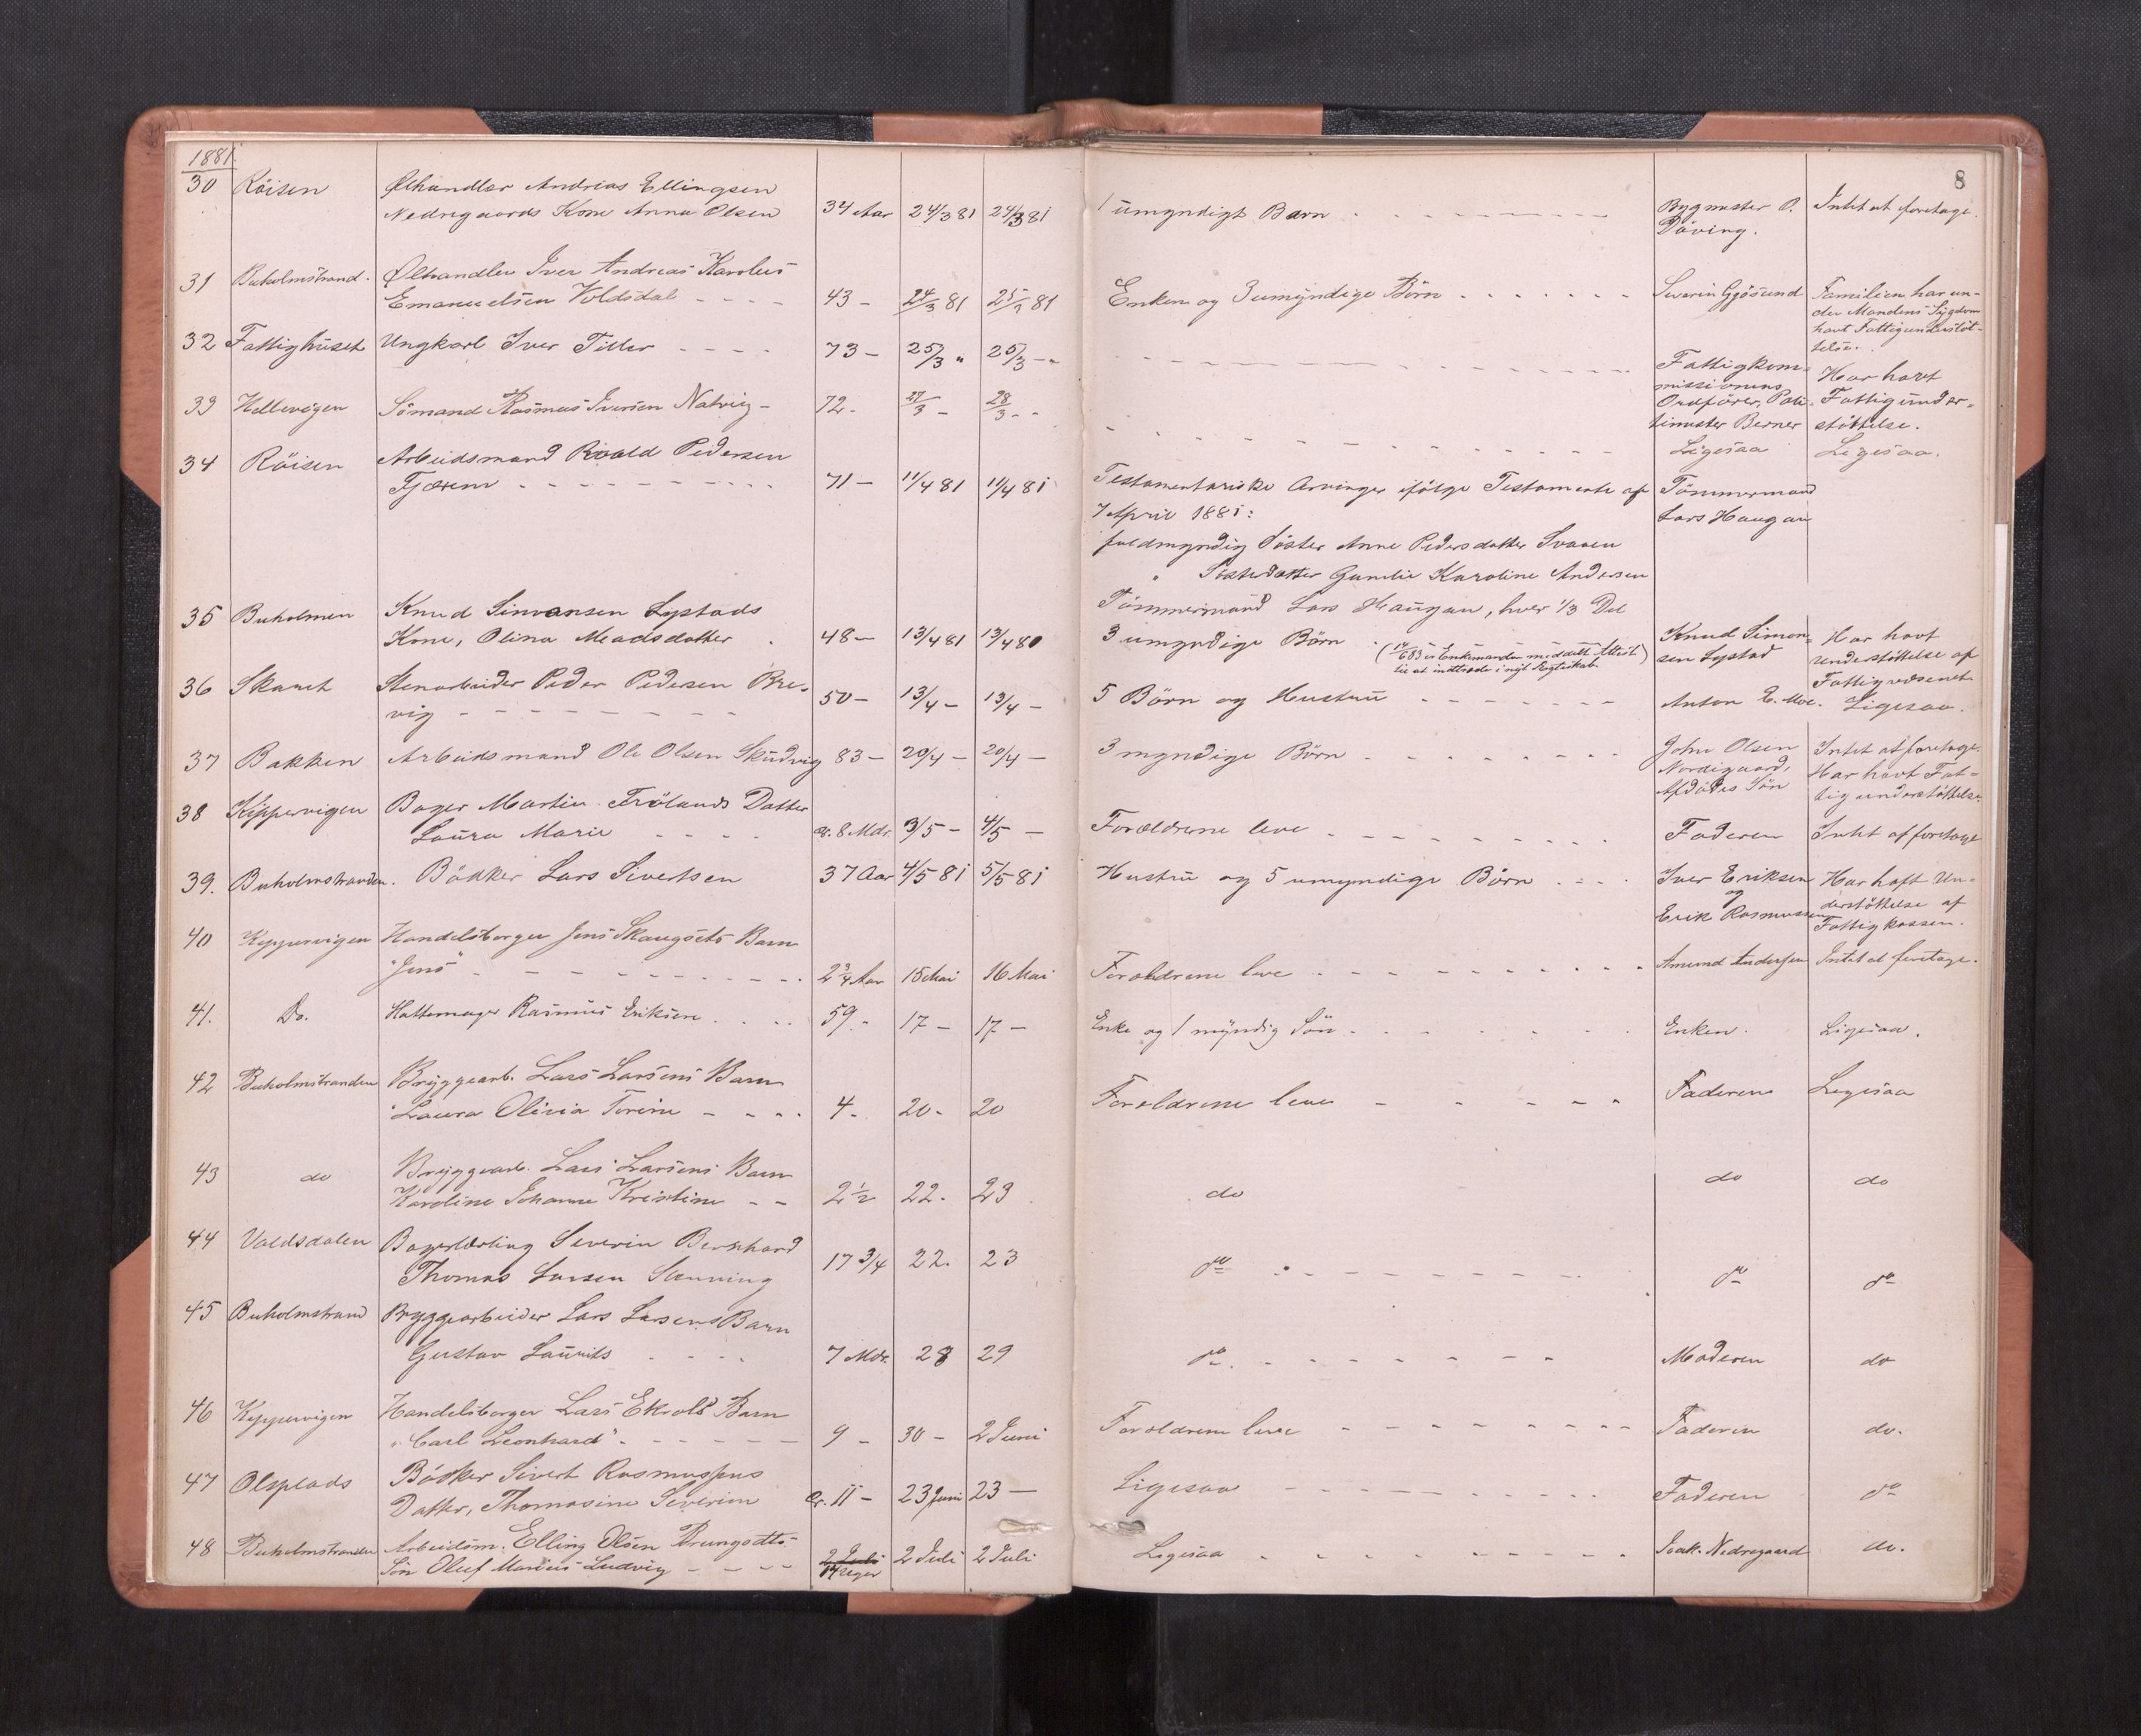 1881.
8
30 Röisen Ølhandler Andreas Ellingsen
Nedregaards Kone Anna Olsen 34 Aar 24/3 81 24/3 81 1 umyndigt Barn Bygmester O. Döving. Intet at foretage.
31 Buholmstrand. Ølhandler Iver Andreas Karolus
Emanuelsen Voldsdal 43 - 24/3 81 25/3 81 Enken og 3 umyndige Börn Severin Gjøsund Familien har un-
der Mandens Sygdom
havt Fattigunderstöt-
telse.
32 Fattighuset Ungkarl Iver Tiller 73 - 25/3 " 25/3 - " Fattigkom-
missionens
Ordförer, Poli-
timester Berner Har havt
Fattigunder-
støttelse.
33 Hellevigen Sömand Rasmus Iversen Natvig - 72 - 27/3 - 28/3 - - Ligesaa Ligesaa.
34 Röisen Arbeidsmand Roald Pedersen
Fjærem 71 - 11/4 81 11/4 81 Testamentariske Arvinger ifølge Testamente af
7 April 1881:
fuldmyndig Söster Anne Pedersdatter Svaaen
" Søsterdatter Gunelie Karoline Andersen
Tömmermand Lars Haugan, hver 1/3 Del
Tömmermand
Lars Haugan
35 Buholmen Knud Simonsen Lystads
Kone, Olina Meadsdatter 48 - 13/4 81 13/4 80 3 umyndige Börn
til at indtræde i nyt Ægteskab.
Knud Simon-
sen Lystad Har havt
understöttelse af
Fattigvæsenet
36 Skaret Stenarbeider Peder Pedersen Bre-
vig 50 - 13/4 - 13/4 - 5 Börn og Hustru Anton E. Moe. Ligesaa.
37 Bakken Arbeidsmand Ole Olsen Skudvig 83 - 20/4 - 20/4 - 3 myndige Börn John Olsen
Nordigaard,
Afdødes Sön Intet at foretage.
Har havt Fat-
tigunderstöttelse.
38 Kippervigen Bager Martin Frölands Datter
Laura Marie cr. 8 Mdr. 3/5 - 4/5 - Forældrene leve Faderen Intet at foretage
39. Buholmstranden. Bödker Lars Sivertsen 37 Aar 4/5 81 5/5 81 Hustru og 5 umyndige Börn Iver Eriksen
og
Erik Rasmussen Har haft Un-
derstöttelse af
Fattigkassen.
40 Keppervigen Handelsborger Jens Skaugsets Barn
"Jens" 2 3/4 Aar 15 Mai 16 Mai Forældrene leve Amund Andersen Intet at foretage.
41. Do. Hattemager Rasmus Eriksen 59 - 17 - 17 - Enke og 1 myndig Sön Enken. Ligesaa.
42 Buholmstranden Bryggearb. Lars Larsens Barn
Laura Olivia Terine 4 - 20 - 20 Forældrene leve Faderen Ligesaa
43 do Bryggearb. Lars Larsens Barn
Karoline Johanne Kristine 2 1/2 22 - 23 do do do
44 Valdsdalen Bagerlærling Severin Bernhard
Thomas Larsen Sunning 17 3/4 22. 23 do do do
45 Buholmstrand Bryggearbeider Lars Larsens Barn
Gustav Laurits 7 Mdr. 28 29 do. Moderen do
46 Keppervigen Handelsborger Lars Ekrols Barn
"Carl Leonhard". 9 - 30 - 2 Juni Forældrene leve Faderen do.
47 Olsplads Bödker Sivert Rasmussens
Datter, Thomasine Severine cr. 11 - 23 Juni 23 - Ligesaa Faderen do
48 Buholmstranden Arbeidsm. Elling Olsen Brungodts
Sön Oluf Marius Ludvig 2 Juli
14 Uger 2 Juli 2 Juli Ligesaa Isak Nedregaard do.